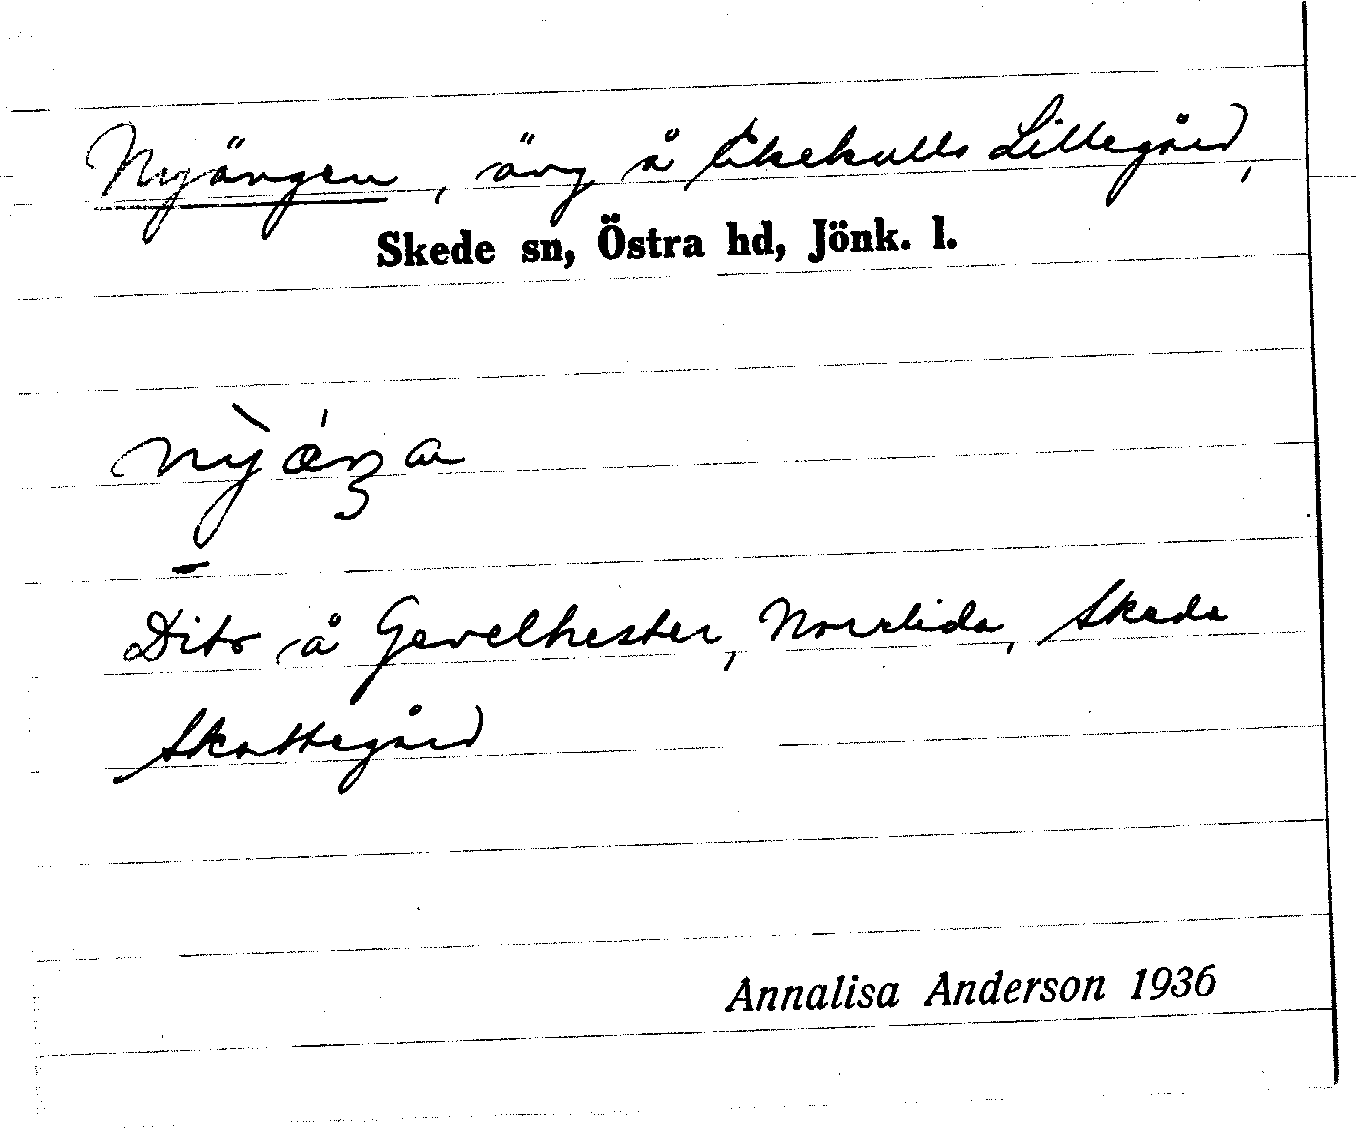 Nyängen, äng å Ekekulls Lillegård,
Skede sn, Östra hd, Jönk. l.
Dito å Gevelhester, Norrlida, Skede
Skattegård
Annalisa Anderson 1936